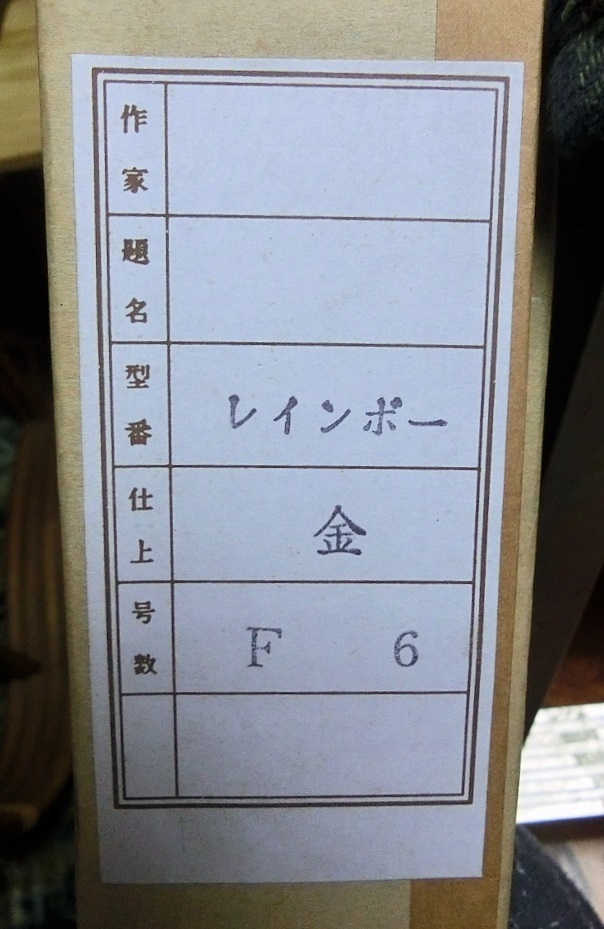 作家
題名
型番 レインボー
仕上 金
号数 F 6